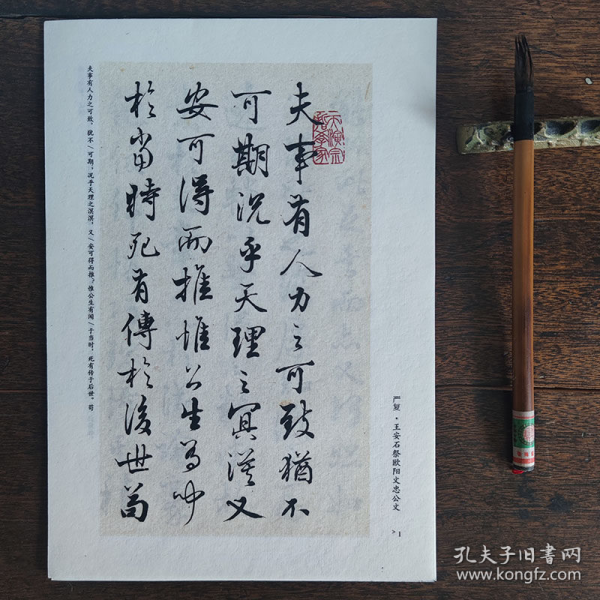 天演宗
哲學家
夫事有人力之可致猶不
可期況乎天理之冥漠又
安可得而推惟公生有聞
於當時死有傳於後世苟
严复·王安石祭欧阳文忠公文
>1
夫事有人力之可致，犹不/可期；况乎天理之溟漠，又/安可得而推？惟公生有闻/于当时，死有传于后世。苟
孔夫子旧书网
www.kongfz.com